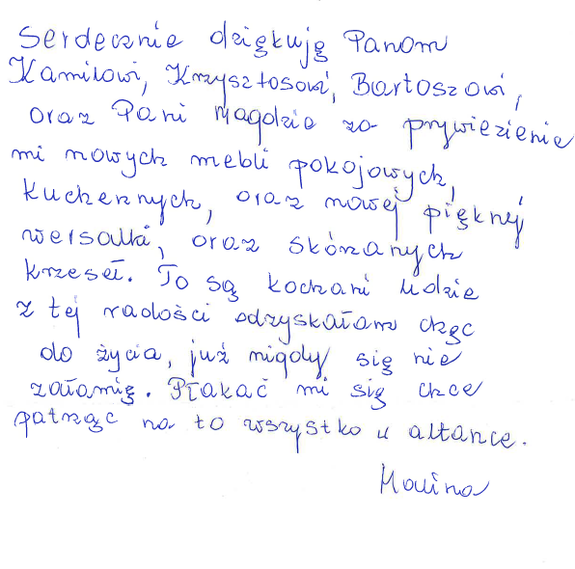 Serdecznie dziękuję Panom
Kamilowi, Krzysztosowi, Bartoszowi,
oraz Pani Magdzie za przywiezienie
mi nowych mebli pokojowych,
kuchennych, oraz nowej pięknej
wersalki, oraz skórzanych
krzeseł. To są kochani ludzie
z tej radości odzyskałam chęc
do życia, już nigdy się nie
załamię. Płakać mi się chce
patrząc na to wszystko w altance.
Halina